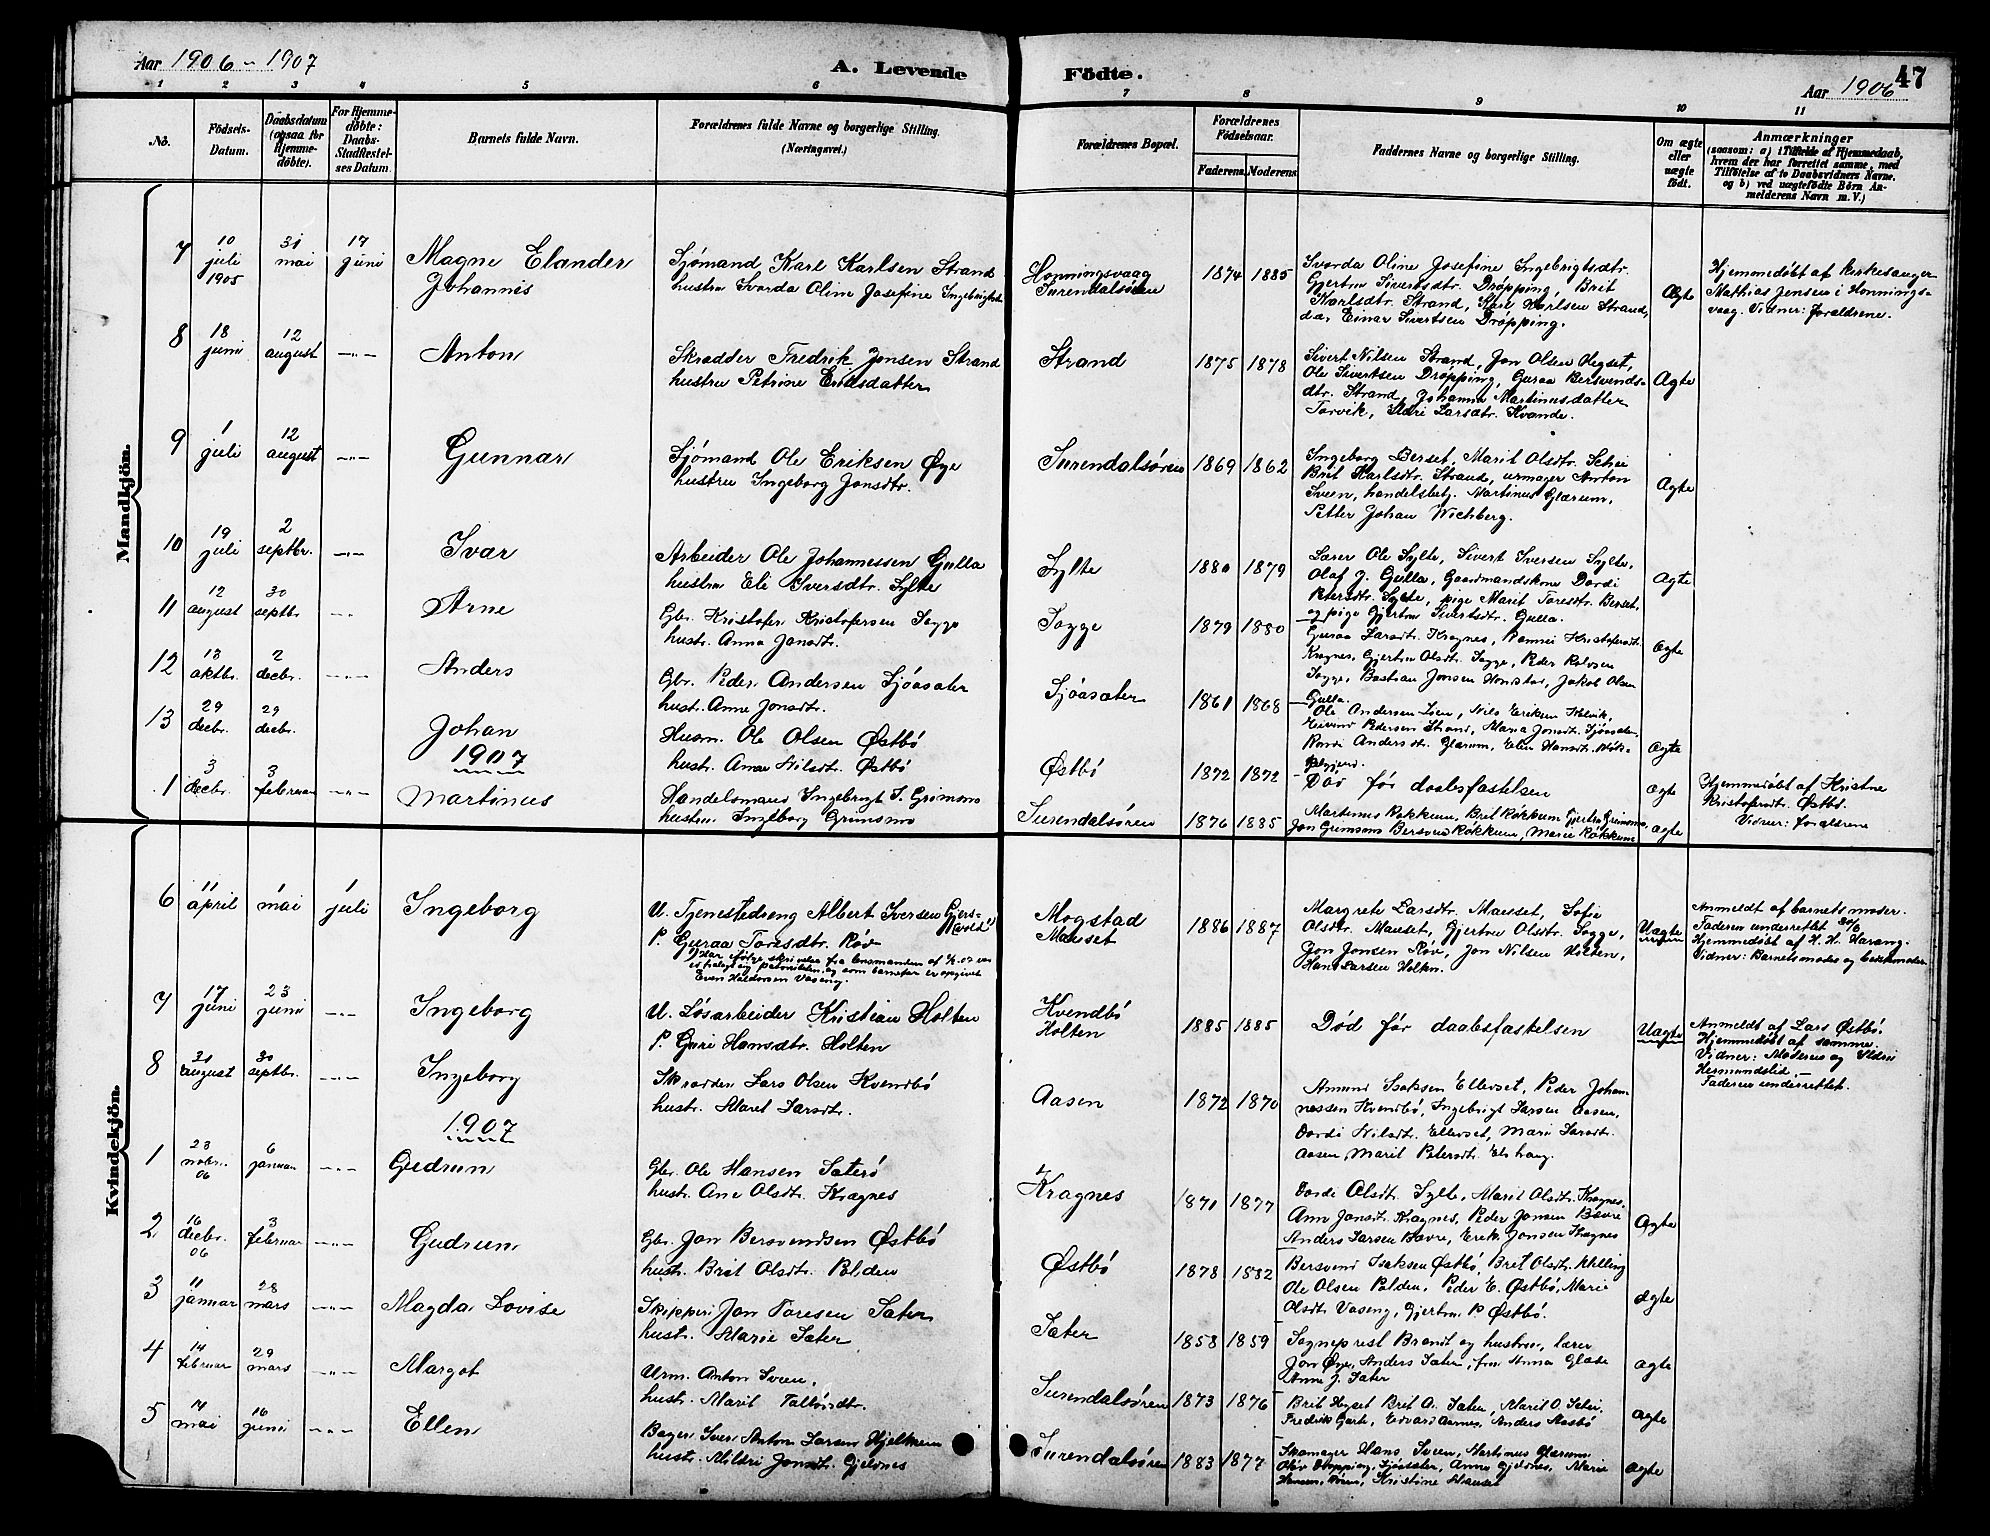 Aar 1906 - 1907
A. Levende
Födte.
Aar 1906
47
1 2 3 4 5 6 7 8 9 10 11
No.
Födsels-
Datum.
Daabsdatum
(ogsaa for
Hjemme-
døbte).
For Hjemme-
døbte:
Daabs-
Stadfestel-
ses Datum.
Barnets fulde Navn.
Forældrenes fulde Navne og borgerlige Stilling.
(Næringsvei.)
Forældrenes Bopæl.
Forældrenes
Födselsaar.
Faderens. Moderens.
Faddernes Navne og borgerlige Stilling.
Om ægte
eller
uægte
födt.
Anmærkninger
(saasom: a) i Tilfælde af Hjemmedaab,
hvem der har forrettet samme, med
Tilföielse af to Daabsvidners Navne.
og b) ved uægtefödte Börn An-
melderens Navn m. V.)
Mandkjön.
7
10
juli
1905
31
mai
17
juni
Magne Elander
Johannes
Sjømand Karl Karlsen Strand
hustru Svorda Oline Josefine Ingebrigtsdtr
Honningsvaag
Surendalsøren
1874 1885
Svorda Oline Josefine Ingebrigtsdtr.
Gjertru Sivertsdtr. Drøpping, Brit
Karlsdtr. Strand, Karl Karlsen Strand,
da, Einar Sivertsen Drøpping.
Ægte
Hjemmedøbt af kirkesanger
Mathias Jensen i Honnings-
vaag. Vidner: forældrene.
8
18
juni
12
august
-"-
Anton
Skrædder Fredrik Jonsen Strand
hustru Petrine Eriksdatter
Strand
1875 1878
Sivert Nilsen Strand, Jon Olsen Hegset,
Ole Sivertsen Drøpping, Guraa Bersvends-
dtr. Strand, Johanna Martinusdatter
Torvik, Ildri Larsdtr. Kvande.
Ægte
9
1
juli
12
august
-"-
Gunnar
Sjømand Ole Eriksen Øye
hustru Ingeborg Jonsdtr.
Surendalsøren
1869 1862
Ingeborg Berset, Marit Olsdtr. Schei
Brit Karlsdtr. Strand, urmager Anton
Sveen, handelsbetj. Martinus Glærum,
Petter Johan Wichberg.
Ægte
10
19
juli
2
septbr.
-"-
Ivar
Arbeider Ole Johannessen Gulla
hustru Eli Iversdtr. Sylte
Sylte
1880 1879
Lærer Ole Sylte, Sivert Iversen Sylte,
Olaf J. Gulla, Gaardmandskone Dordi
Petersdtr. Sylte, pige Marit Toresdtr. Berset,
og pige Gjertru Sivertsdtr. Gulla.
Ægte
11
12
august
30
septbr
-"-
Arne
Gbr. Kristofer Kristofersen Sogge
hustr. Anna Jonsdtr.
Sogge
1879 1880
Guraa Larsdtr. Kragnes, Kristofersdtr.
Kragnes, Gjertru Olsdtr. Sogge, Peder
Sogge, Bastian Jonsen Honstad, Jakob Olsen
Gulla.
Ægte
12
13
oktbr.
2
decbr.
-"-
Anders
Gbr. Peder Andersen Sjøasæter
hust. Anne Jonsdtr.
Sjøasæter
1861 1868
Ole Andersen Moen, Nils Eriksen
Eivind Pedersen Strand, Maria Jonsdtr. Sjøasæter
Randi Andersdtr. Glærum, Elin Hansdtr.
Ægte
13
29
decbr.
29
decbr.
Johan
Husm. Ole Olsen Østbø
hustr. Anne Nilsdtr. Østbø
Østbø
1872 1872
Død før daabsfæstelsen
Ægte
Hjemmedøbt af Kristine
Kristofersdtr. Østbø.
Vidner: forældrene
1907
1
3
decbr.
3
februar
-"-
Martinus
Handelsmand Ingebrigt J. Grimsmo
hustru Ingeborg Grimsmo
Surendalsøren
1876 1885
Martinus Røkkum, Brit Røkkum, Gjertru Grimsmo,
Jon Grimsmo Bersven Røkkum, Marie Røkkum
Ægte
Kvindekjön.
6
11
april
1
mai
1
juli
Ingeborg
U. Tjenestedreng Albert Iversen Gjers-
vold
P. Guraa Toresdtr. Røv
Even Haldorsen Vaseng.
Mogstad
Mauset
1886 1887
Margrete Larsdtr. Mauset, Sofie
Olsdtr. Mauset, Gjertru Olsdtr. Sogge,
Jon Jonsen Røv, Jon Nilsen Holten,
Hans Larsen Holten.
Uægte
Anmeldt af barnets moder.
Faderen underrettet 30/6
Hjemmedøbt af H. H. Harang.
Vidner: Barnets moder og bestemoder
7
17
juni
23
juni
-"-
Ingeborg
U. Løsarbeider Kristian Holten
P. Guri Hansdtr. Holten
Kvendbø
Holten
1885 1885
Død før daabsfæstelsen
Uægte
Anmeldt af Lars Østbø.
Hjemmedøbt af samme.
Vidner: Moderen og Ildri
Hermundslid. -
Faderen underrettet.
8
31
august
30
septbr.
-"-
Ingeborg
Skrædder Lars Olsen Kvendbø
hustr. Marit Larsdtr.
Aasen
1872 1870
Amund Isaksen Ellevset, Peder Johan-
nessen Kvendbø, Ingebrigt Larsen Aasen,
Dordi Nilsdtr. Ellevset, Mari Larsdtr.
Aasen, Marit Petersdtr. Elshaug.
1907
1
23
novbr.
06
6
januar
-"-
Gudrun
Gbr. Ole Hansen Säterø
hust. Ane Olsdtr. Kragnes
Kragnes
1871 1877
Dordi Olsdtr. Sylte, Marit Olsdtr. Kragnes,
Ann Jonsdtr. Kragnes, Peder Jonsen Bævre
Anders Larsen Bævre, Erik Jonsen Kragnes
Ægte
2
16
decbr.
06
3
februar
-"-
Gudrun
Gbr. Jon Bersvendsen Østbø
hust. Brit Olsdtr. Polden
Østbø
1878 1882
Bersvend Isaksen Østbø, Brit Olsdtr.
Ole Olsen Polden, Peder E. Østbø, Marie
Olsdtr. Vaseng, Gjertru P. Østbø.
Ægte
3
11
januar
28
mars
-"-
Magda Lovise
Skipper Jon Toresen Sæter
hust. Marie Sæter
Sæter
1858 1859
Sogneprest Brandt og hustru, lærer
Jon Øye, Anders Sæter, fru Anna Glæse
Anne J. Sæter
Ægte
4
14
februar
29
mars
-"-
Margot
Urm. Anton Sveen,
hust. Marit
Surendalsøren
1873 1876
Brit Hegset Brit A. Sæter, Marit O. Sæter,
Fredrik Garte, Edvard Aarnes, Anders Aasbø
Ægte
5
14
mai
16
juni
-"-
Ellen
Bager Iver Anton Larsen Hjelkrem
hust. Mildri Jonsdtr. Gjeldnes
Surendalsøren
1883 1877
Skomager Hans Sveen, Martinus Glærum
Olav Drøpping, Sjøasæter, Anne Gjeldnes, Marie
Hansen, Øren, Kristine Mauset
Ægte